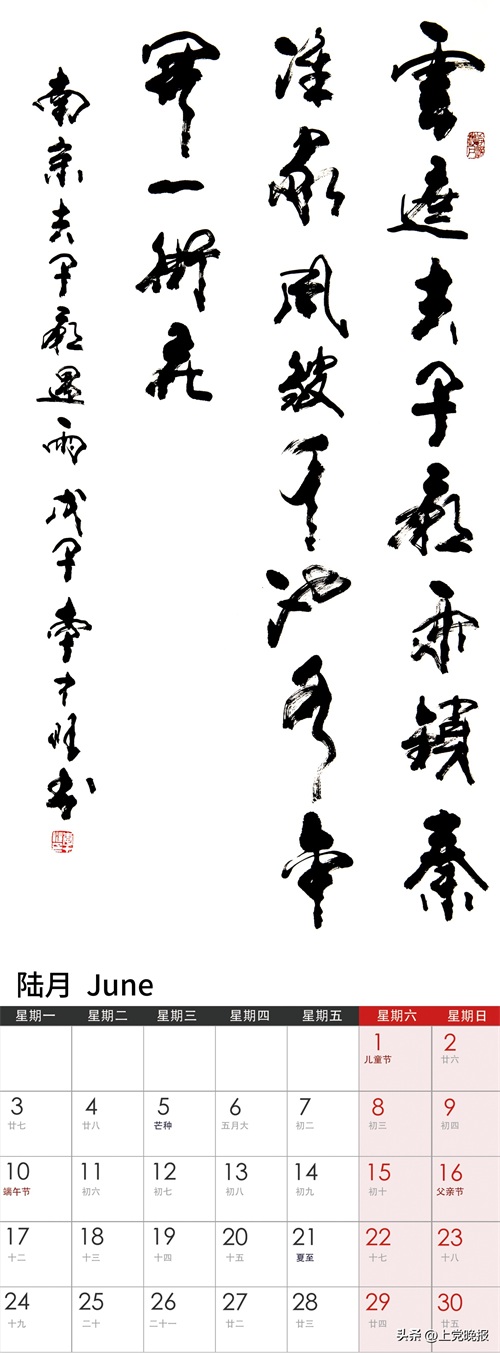 雲遮夫子廟雨鎖秦
淮家風皺池水傘
開一街花
南京夫子廟遇雨 戊子 李才旺書
陆月 June
星期一 星期二 星期三 星期四 星期五 星期六 星期日
1 2
儿童节 廿六
3 4 5 6 7 8 9
廿七 廿八 芒种 五月大 初二 初三 初四
10 11 12 13 14 15 16
端午节 初六 初七 初八 初九 初十 父亲节
17 18 19 20 21 22 23
十二 十三 十四 十五 夏至 十七 十八
24 25 26 27 28 29 30
十九 二十 二十一 廿二 廿三 廿四 廿五
头条 @上党晚报